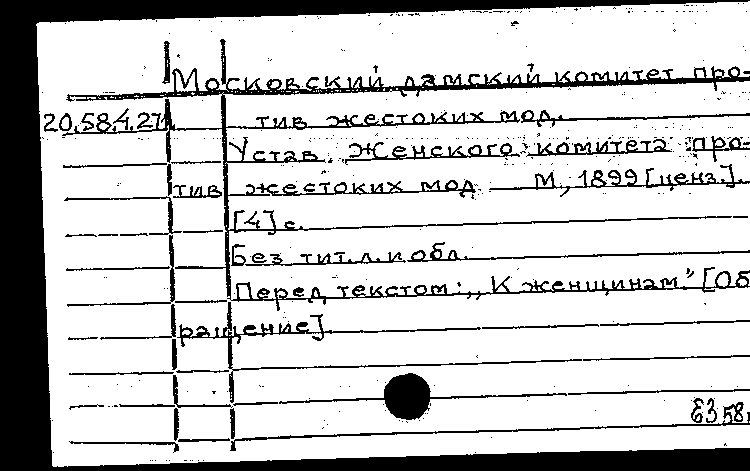 Московский дамский комитет про-
20.58.4.271. тив жестоких мод.
Устав Женского комитета про-
тив жестоких мод. — М., 1899 [ценз.].
[4] с.
Без тит. л. и обл.
Перед текстом: „К женщинам." [Об
ращение].